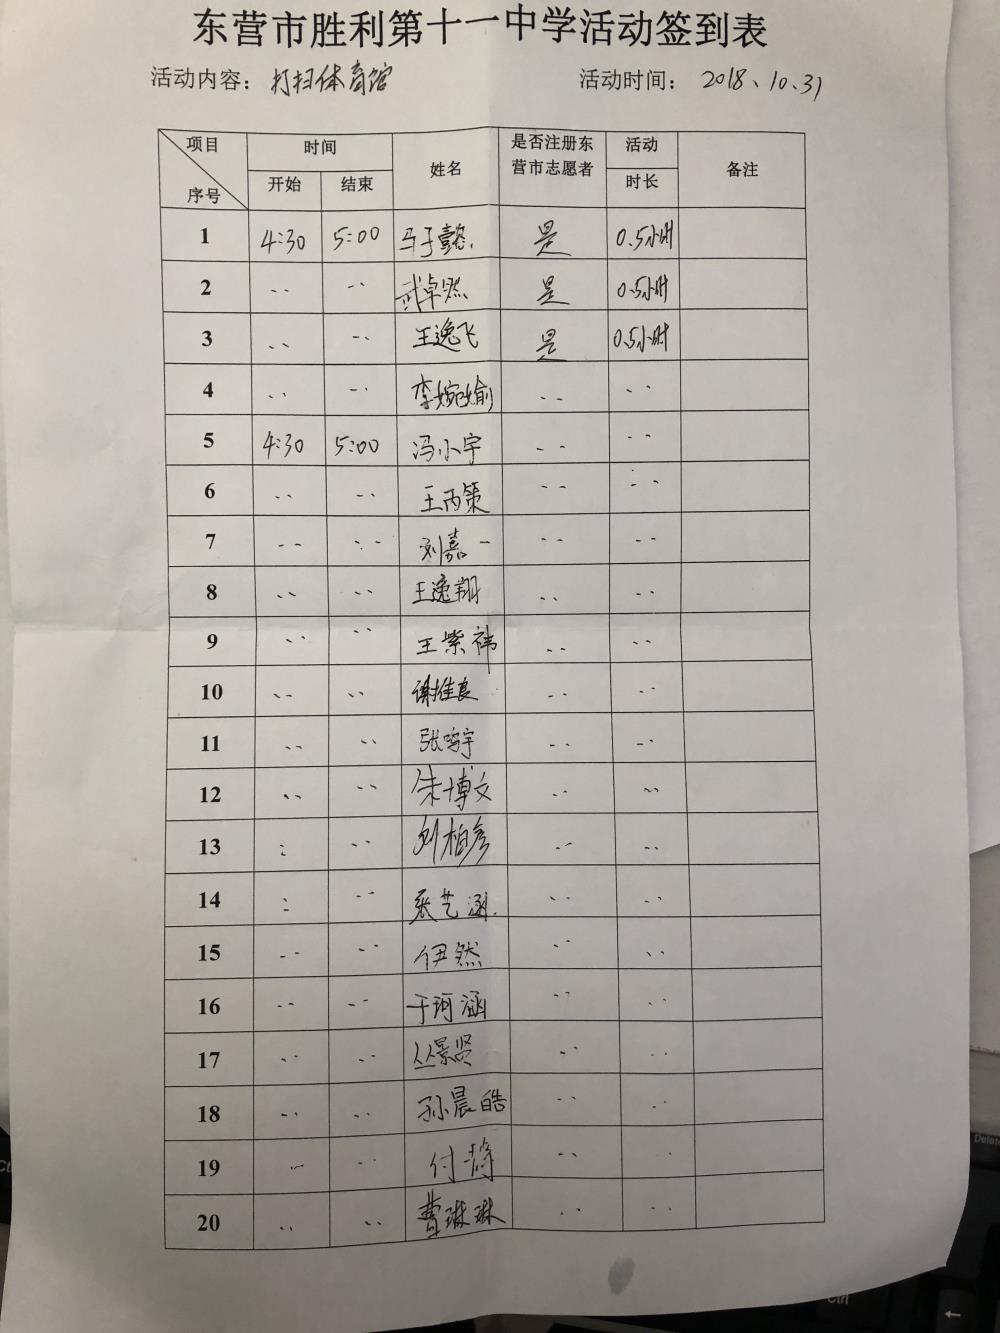 东营市胜利第十一中学活动签到表
活动内容：打扫体育馆 活动时间：2018、10、31
项目 时间 姓名 是否注册东营市志愿者 活动时长 备注
序号 开始 结束
1 4:30 5:00 马于懿 是 0.5小时
2 〃 〃 武卓然 是 0.5小时
3 〃 〃 王逸飞 是 0.5小时
4 〃 〃 李婉瑜 〃 〃
5 4:30 5:00 冯小宇 〃 〃
6 〃 〃 王丙策 〃 〃
7 〃 〃 刘嘉一 〃 〃
8 〃 〃 王逸翔 〃 〃
9 〃 〃 王紫祎 〃 〃
10 〃 〃 谢佳良 〃 〃
11 〃 〃 张鸣宇 〃 〃
12 〃 〃 朱博文 〃 〃
13 〃 〃 刘柏彦 〃 〃
14 〃 〃 张艺涵 〃 〃
15 〃 〃 伊然 〃 〃
16 〃 〃 于珂涵 〃 〃
17 〃 〃 丛景贤 〃 〃
18 〃 〃 孙晨皓 〃 〃
19 〃 〃 付 〃 〃
20 〃 〃 曹琳琳 〃 〃
Delete
Ctrl
←